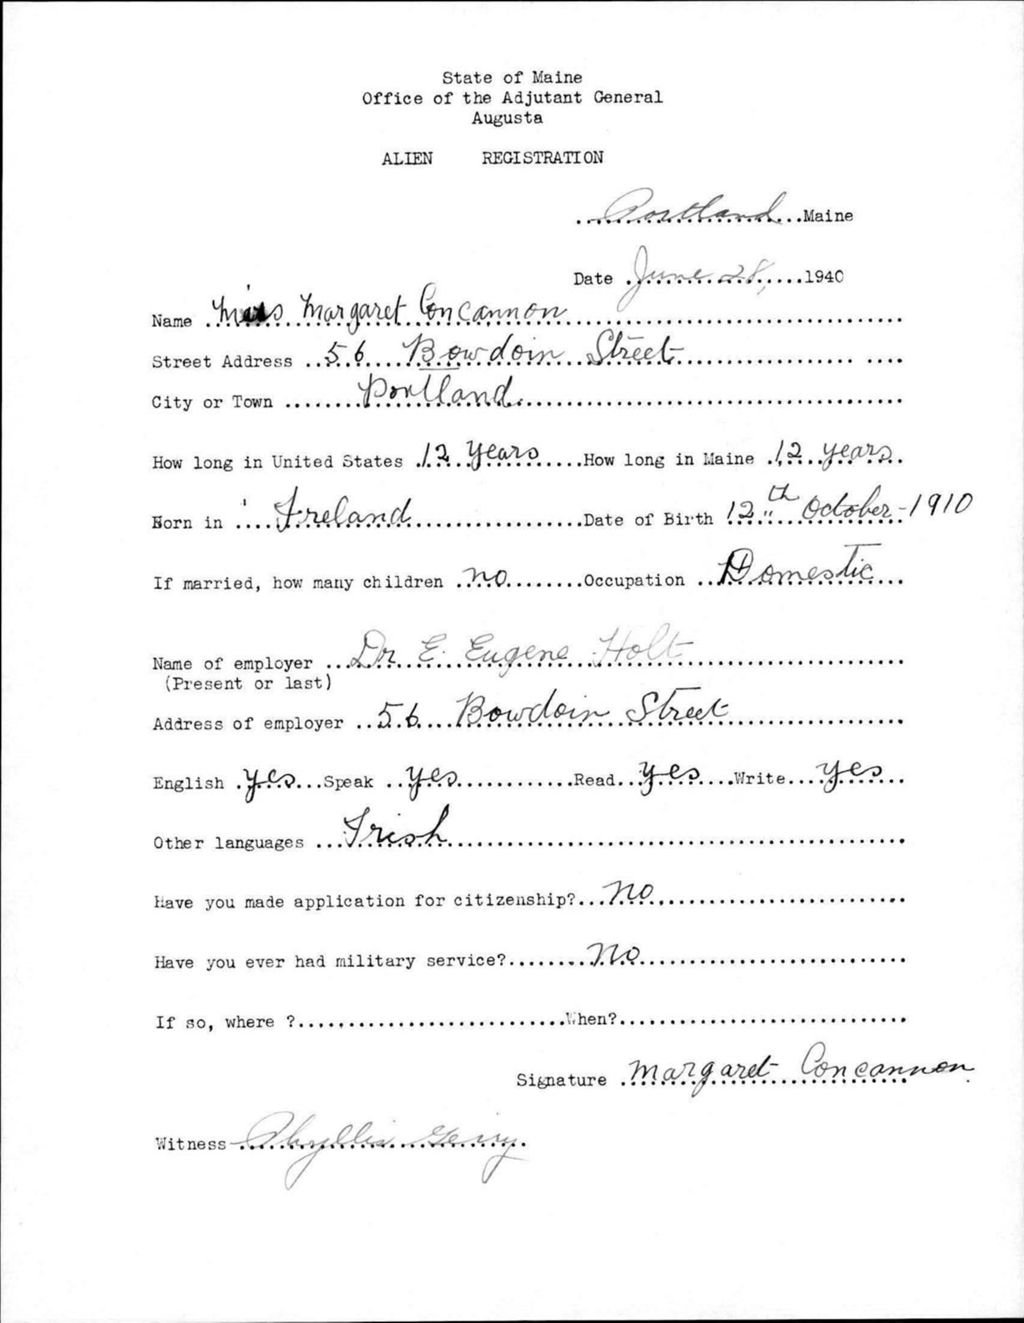 State of Maine
Office of the Adjutant General
Augusta
ALIEN REGISTRATION
Portland Maine
Date June 28, 1940
Name Miss Margaret Concannon
Street Address 56 Bowdoin Street
City or Town Portland
How long in United States 12 years How long in Maine 12 years
Born in Ireland Date of Birth 12th October-1910
If married, how many children no Occupation Domestic
Name of employer Dr. E. Eugene Holt
(Present or last)
Address of employer 56 Bowdoin Street
English yes Speak yes Read yes Write yes
Other languages Irish
Have you made application for citizenship? no
Have you ever had military service? No
If so, where ? When?
Signature Margaret Concannon
Witness Phyllis Gerry